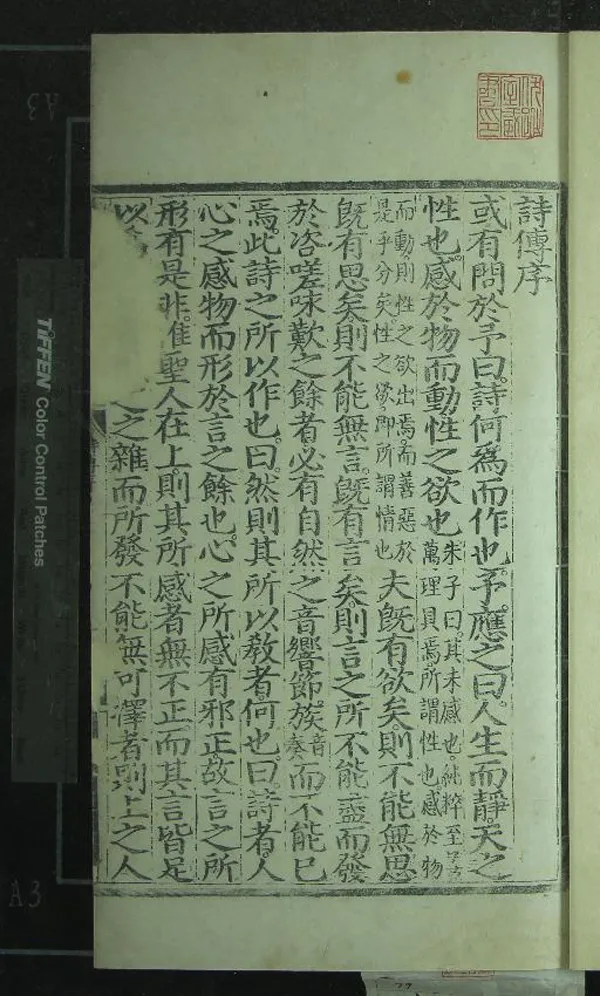 詩傳序
或有問於予曰詩何為而作也予應之曰人生而靜天之
性也感於物而動性之欲也朱子曰其未感也純粹至善萬理具焉所謂性也感於物
而動則性之欲出焉而善惡於是乎分矣性之欲即所謂情也夫旣有欲矣則不能無思
旣有思矣則不能無言旣有言矣則言之所不能盡而發
於咨嗟咏歎之餘者必有自然之音響節族音奏而不能已
焉此詩之所以作也曰然則其所以敎者何也曰詩者人
心之感物而形於言之餘也心之所感有邪正故言之所
形有是非惟聖人在上則其所感者無不正而其言皆足
以之雜而所發不能無可擇者則上之人
TIFFEN Color Control Patches
A3
A3